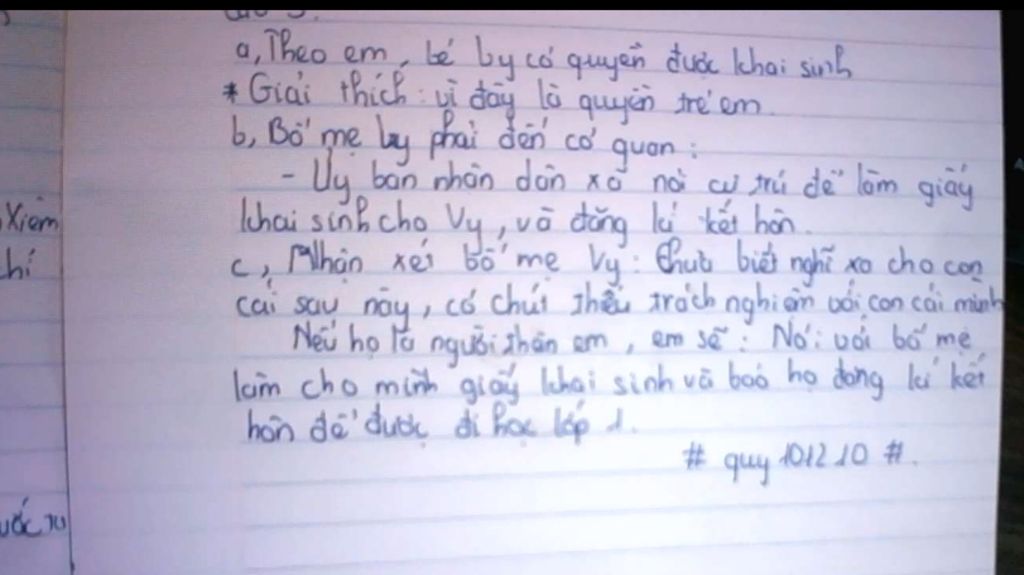 a, Theo em, bé Vy có quyền được khai sinh
* Giải thích: vì đây là quyền trẻ em.
b, Bố mẹ Vy phải đến cơ quan:
- Uỷ ban nhân dân xã nơi cư trú để làm giấy
khai sinh cho Vy, và đăng kí kết hôn.
Xiêm
c, Nhận xét bố mẹ Vy: Chưa biết nghĩ xa cho con
hí
cái sau này, có chút thiếu trách nghiệm với con cái mình
Nếu họ là người thân em, em sẽ: Nói với bố mẹ
làm cho mình giấy khai sinh và bảo họ đăng kí kết
hôn để được đi học lớp 1.
# quy 101210 #.